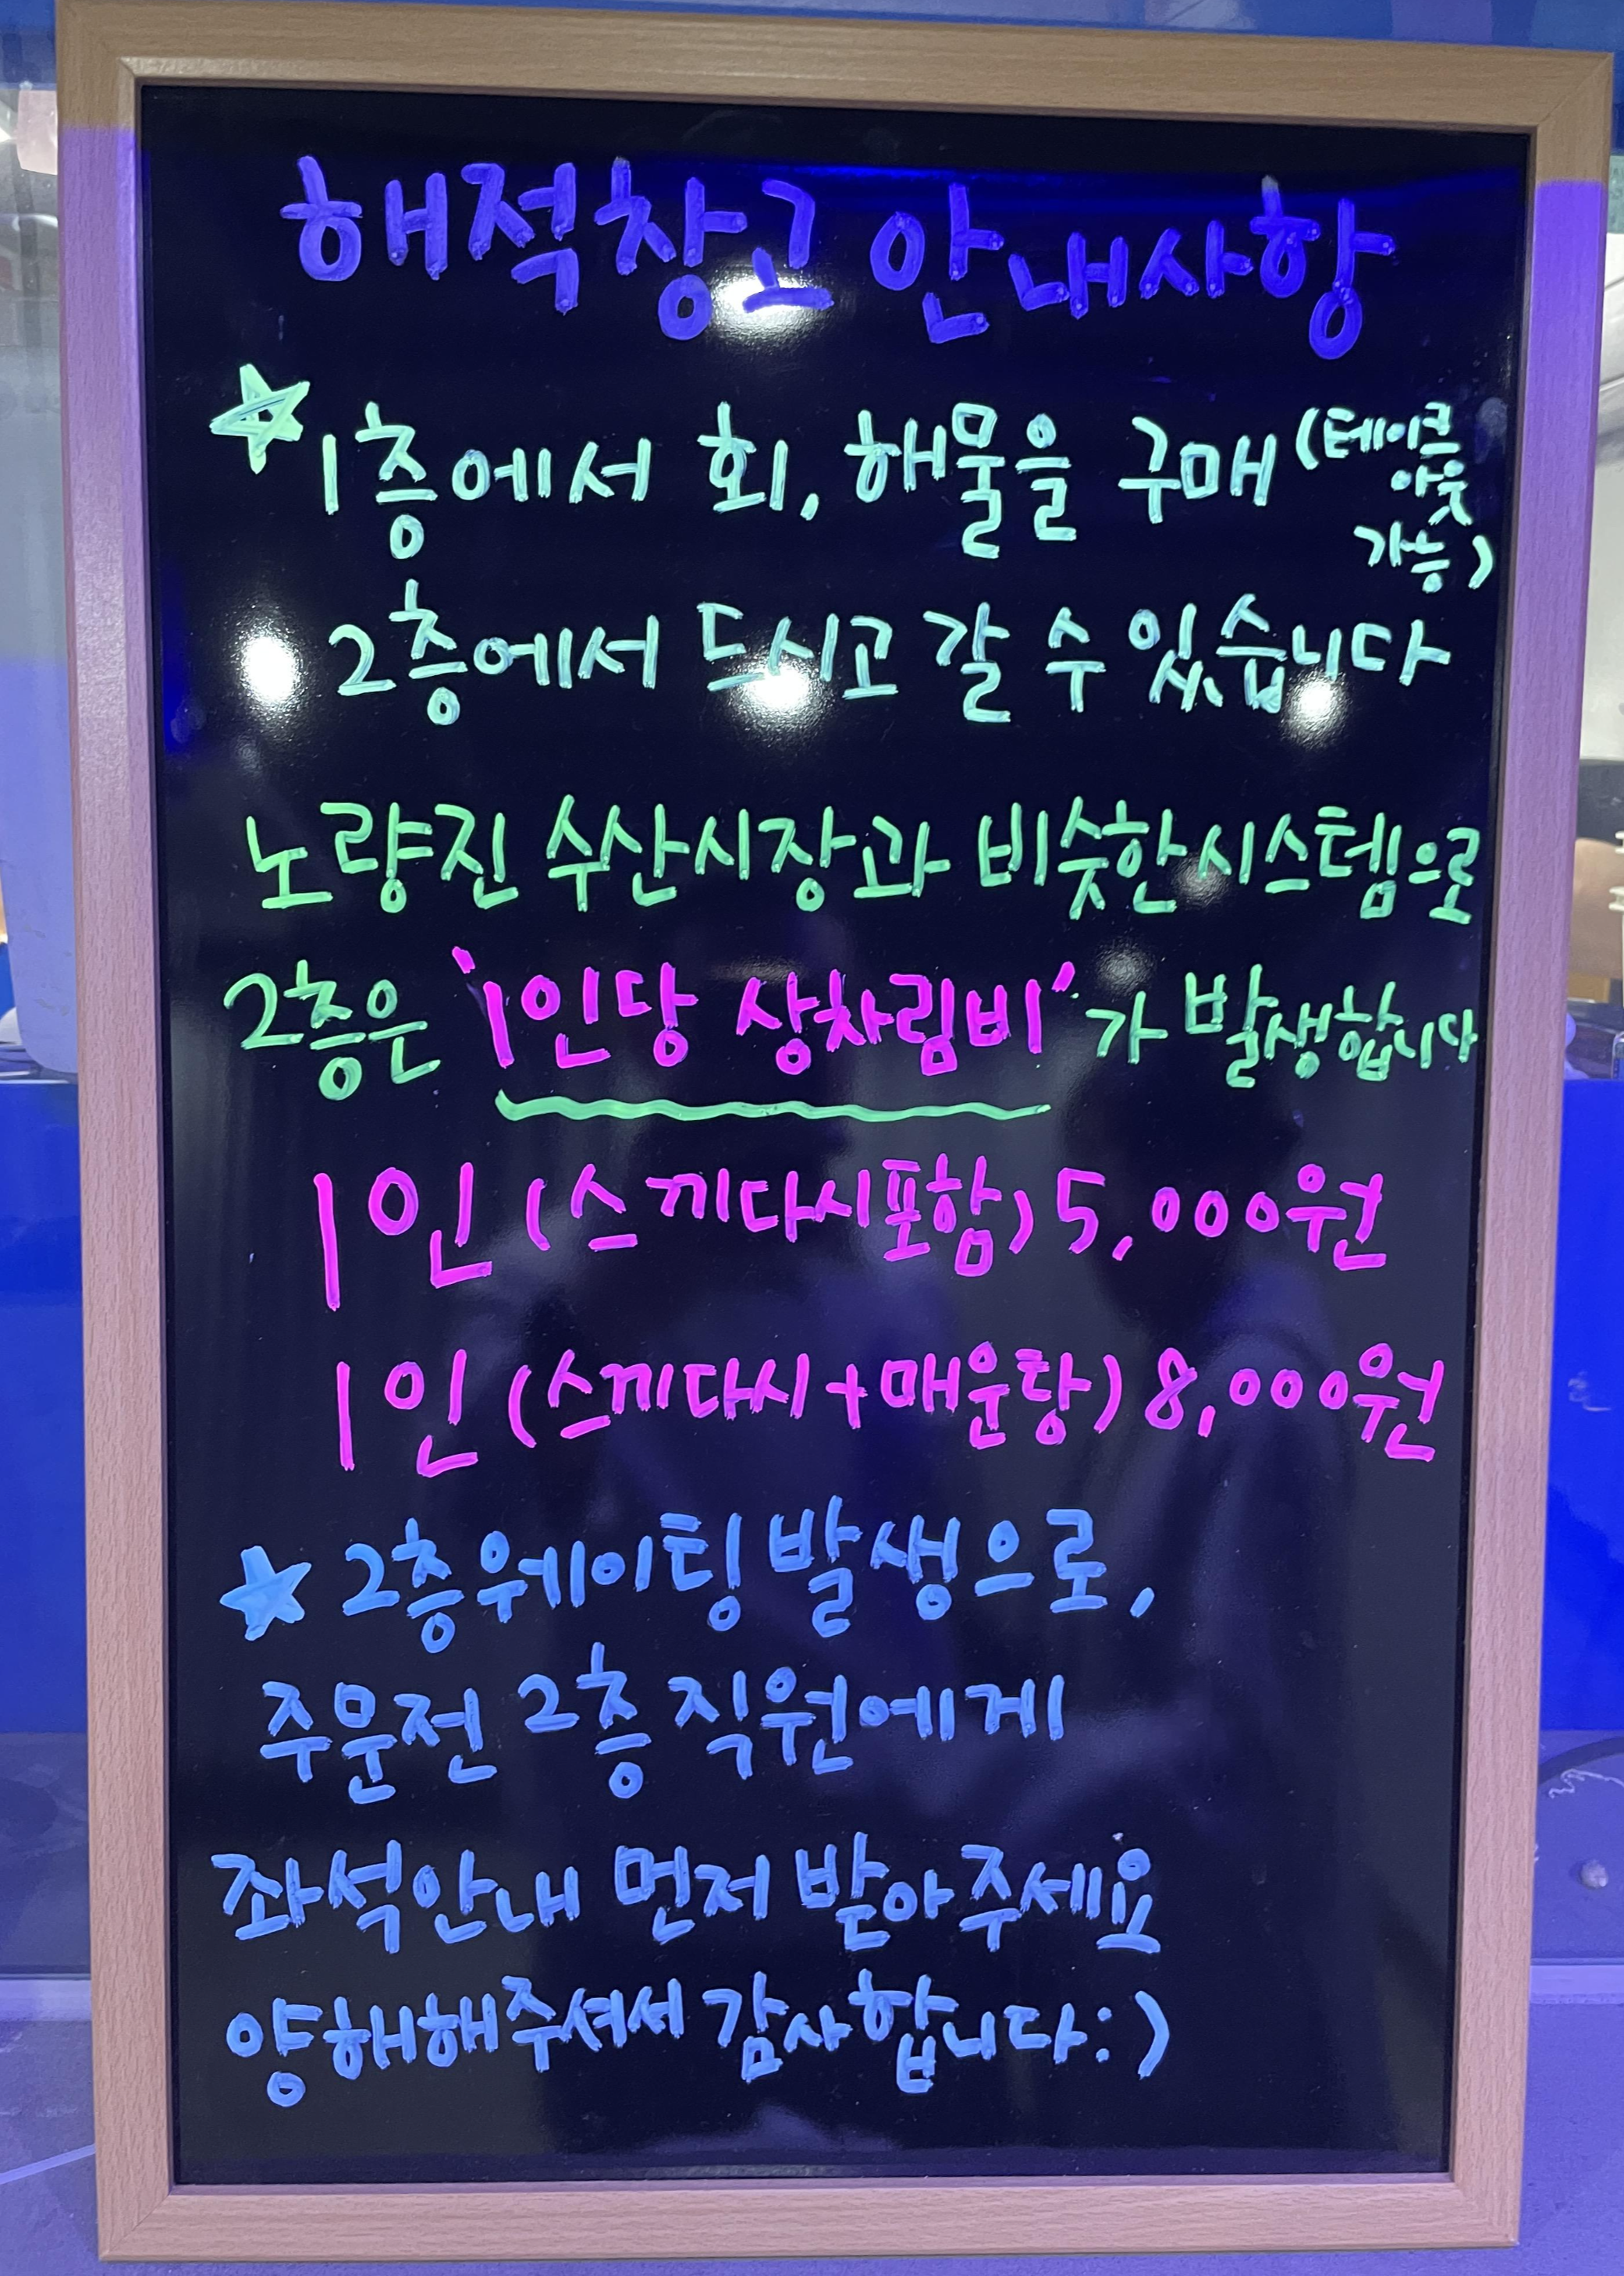 해적창고 안내사항
☆1층에서 회, 해물을 구매 (테이크
아웃
가능)
2층에서 드시고 갈 수 있습니다
노량진 수산시장과 비슷한시스템으로
2층은 '1인당 상차림비'가 발생합니다
1인 (스끼다시포함) 5,000원
1인 (스끼다시+매운탕) 8,000원
★ 2층웨이팅 발생으로,
주문전 2층 직원에게
좌석안내 먼저 받아주세요
양해해주셔서 감사합니다:)